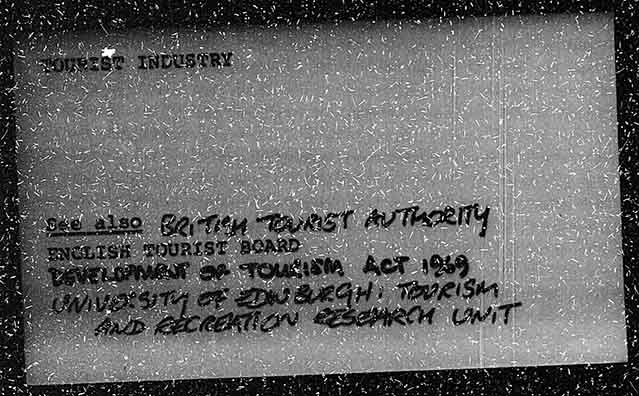 TOURIST INDUSTRY
See also BRITISH TOURIST AUTHORITY
ENGLISH TOURIST BOARD
DEVELOPMENT OF TOURISM ACT 1969
UNIVERSITY OF EDINBURGH: TOURISM
AND RECREATION RESEARCH UNIT